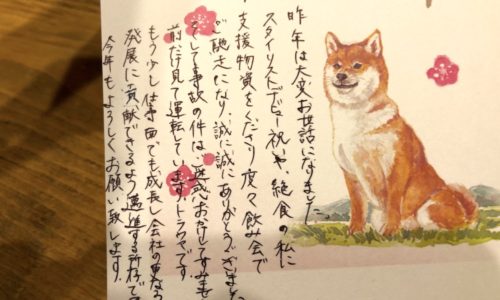 昨年は大変お世話になりました。
スタイリストデビュー祝いや、絶食の私に
支援物資をくださり、度々飲み会で
ご馳走になり、誠に誠にありがとうございました
そして事故の件はご迷惑おかけしてすみませ
前だけ見て運転しています。トラウマです
もう少し仕事面でも成長し会社の更なる
発展に貢献できるよう邁進する所存で
今年もよろしくお願い致します。